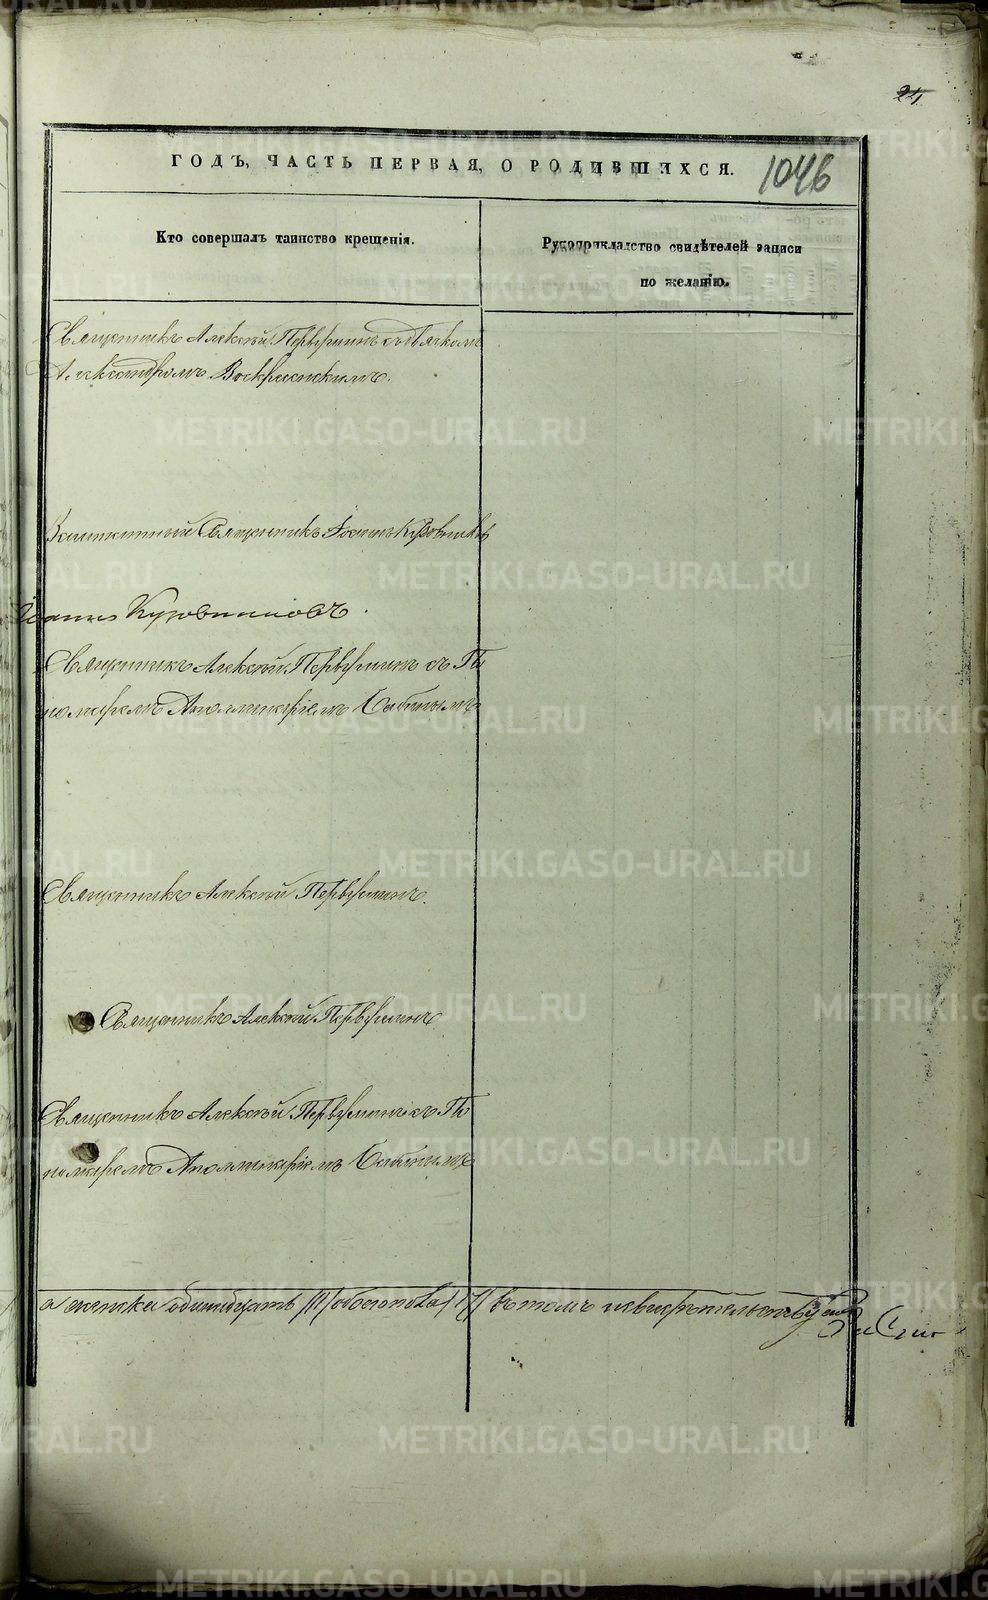 24
ГОДЪ, ЧАСТЬ ПЕРВАЯ, О РОДИВШИХСЯ.
1046
Кто совершалъ таинство крещенія.
Рукоприкладство свидѣтелей записи
по желанію.
Священникъ Алексѣй Первушинъ съ дьячкомъ
Александромъ Воскресенскимъ.
Священникъ Іоаннъ Кузовниковъ
Іоаннъ Кузовниковъ.
Священникъ Алексѣй Первушинъ съ По
номаремъ Аполлинаріемъ Бабинымъ
Священникъ Алексѣй Первушинъ.
Священникъ Алексѣй Первушинъ
Священникъ Алексѣй Первушинъ съ По
номаремъ Аполлинаріемъ Бабинымъ
а женска одинадцать /11/ обоего пола въ томъ и свидѣтельствуемъ
METRIKI.GASO-URAL.RU